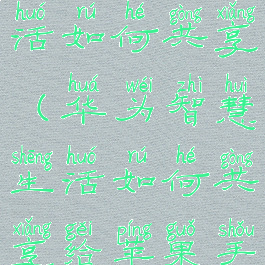 huó rú hé gòng xiǎng
活如何共享
huá wéi zhì huì
（华为智慧
shēng huó rú hé gòng
生活如何共
xiǎng gěi píng guǒ shǒu
享给苹果手